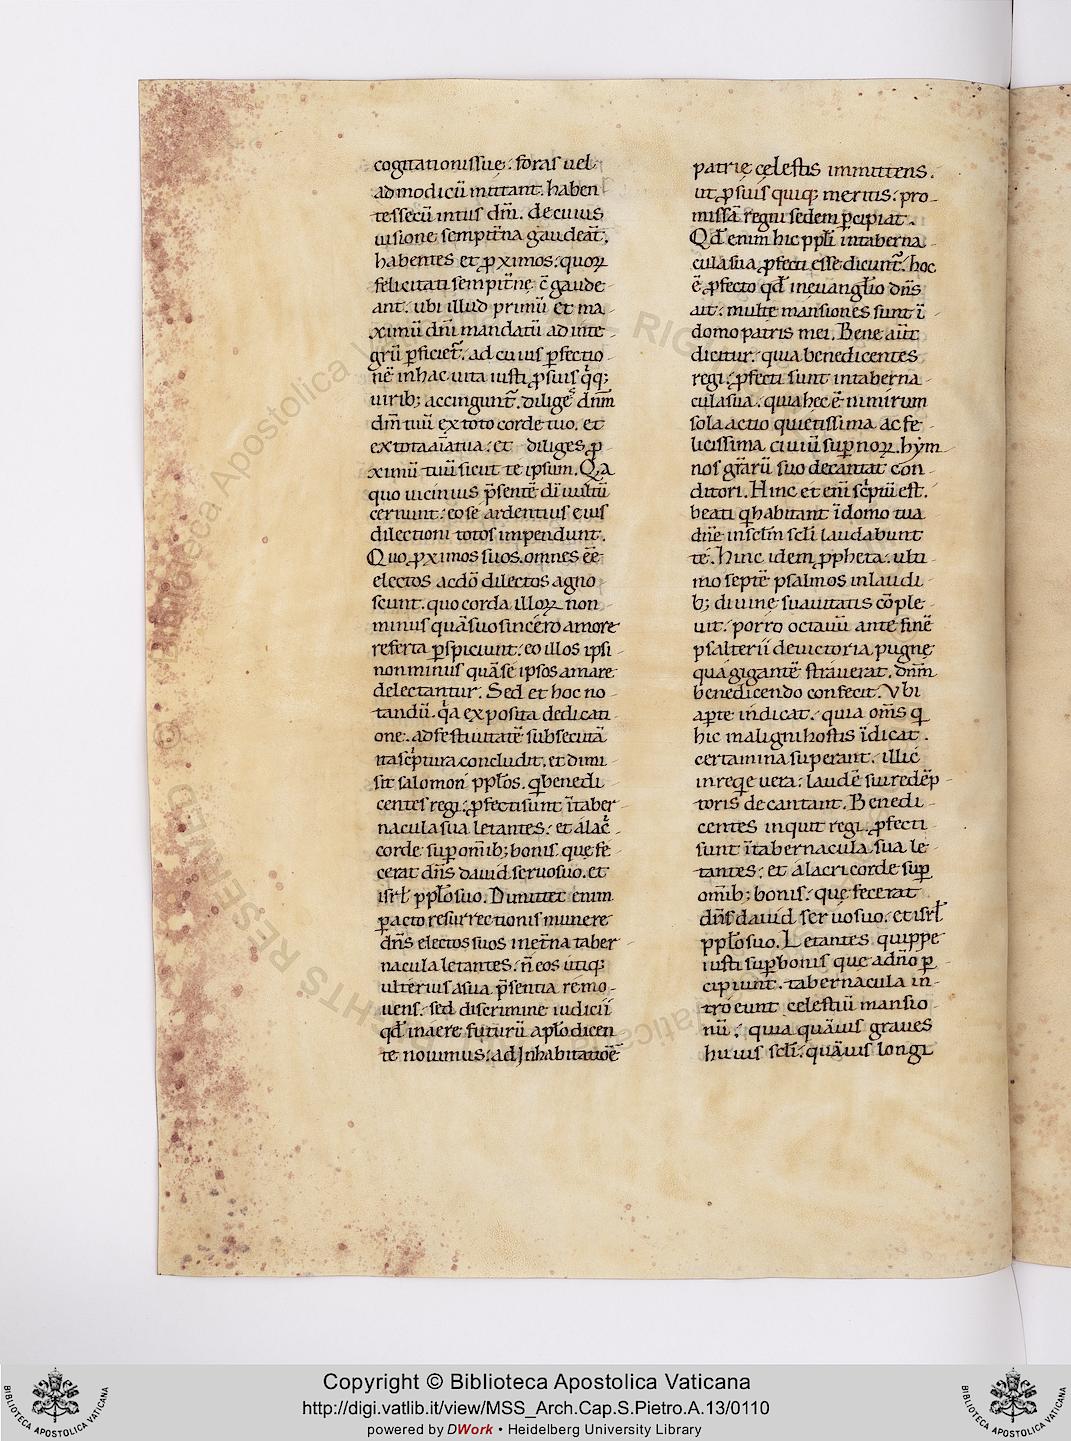 cogitationis suę. foras uel
ad modicū mittant. haben
tes secū intus dm̄. de cuius
uisione sempit̄na gaudeāt.
habentes et ꝓximos. quoꝝ
felicitati sempit̄nę c̄gaude
ant. ubi illud primū et ma
ximū dn̄i mandatū ad inte
grū ꝑficiet̄. ad cuius ꝑfectio
nē in hac uita iusti ꝓ suis
uirib; accingunt̄. diliges dn̄m
dm̄ tuū ex toto corde tuo. et
ex tota aīa tua. et diliges ꝓ
ximū tuū sicut te ipsum. Qa
quo uicinius p̄sentē dī uultū
cernunt. eo se ardentius eius
dilectioni totos impendunt.
Quo ꝓximos suos omnes eē
electos ac dō dilectos agno
scunt. quo corda illoꝝ non
minus quā suo sincero amore
referta ꝑspiciunt. eo illos ipsi
non minus quā se ipsos amare
delectantur. Sed et hoc no
tandū. qa exposita dedicati
one. ad festiuitatē subsecutā
ita scͥptura concludit. et dimi
sit salomon ppl̄os. qui benedi
centes regi. ꝓfecti sunt ī taber
nacula sua letantes. et alac̄
corde suꝑ om̄ib; bonis. quę fe
cerat dn̄s dauid seruo suo. et
isrl̄ ppl̄o suo. Dimittet enim
ꝑacto resurrectionis munere
dn̄s electos suos in et̄na taber
nacula letantes. n̄ eos utiq;
ulterius a sua p̄sentia remo
uens. sed discrimine iudicii
qđ in aere futurū apl̄o dicen
te nouimus. ad Inhabitationē
patrię cęlestis immittens.
ut ꝓ suis quiq; meritis. pro
missā regni sedem ꝑcipiat.
Qđ enim hic ppl̄i in taberna
cula sua ꝓfecti esse dicunt̄. hoc
ē ꝓfecto qđ in euangl̄io dn̄s
ait. multę mansiones sunt ī
domo patris mei. Bene aūt
dicitur. quia benedicentes
regi. ꝓfecti sunt in taberna
cula sua. quia hec ē nimirum
sola actio quietissima ac fe
licissima ciuiū suꝑnoꝝ. hẏm
nos gr̄arū suo decantat con
ditori. Hinc et enī scͥptū est.
beati qui habitant ī domo tua
dn̄e in scl̄m scl̄i laudabunt
te. hinc idem ꝓpheta. ulti
mo septē psalmos in laudi
b; diuinę suauitatis cōple
uit. porro octauū ante finē
psalterii de uictoria pugnę
qua gigantē strauerat. dn̄m
benedicendo confecit. Vbi
aꝑte indicat. quia om̄s qui
hic maligni hostis
certamina superant. illic
in requie uera. laudē sui redēp
toris decantant. Benedi
centes inquit regi. ꝓfecti
sunt ī tabernacula sua le
tantes. et alacri corde suꝑ
om̄ib; bonis. quę fecerat
dn̄s dauid seruo suo. et isrl̄
ppl̄o suo. Letantes quippe
iusti suꝑ bonis quę a dn̄o ꝑ
cipiunt. tabernacula in
troeunt celestiū mansio
nū. quia quāuis graues
huius scl̄i. quāuis longi
© Biblioteca Apostolica Vaticana
ALL RIGHTS RESERVED
BIBLIOTECA APOSTOLICA VATICANA
Copyright © Biblioteca Apostolica Vaticana
http://digi.vatlib.it/view/MSS_Arch.Cap.S.Pietro.A.13/0110
powered by DWork • Heidelberg University Library
BIBLIOTECA APOSTOLICA VATICANA